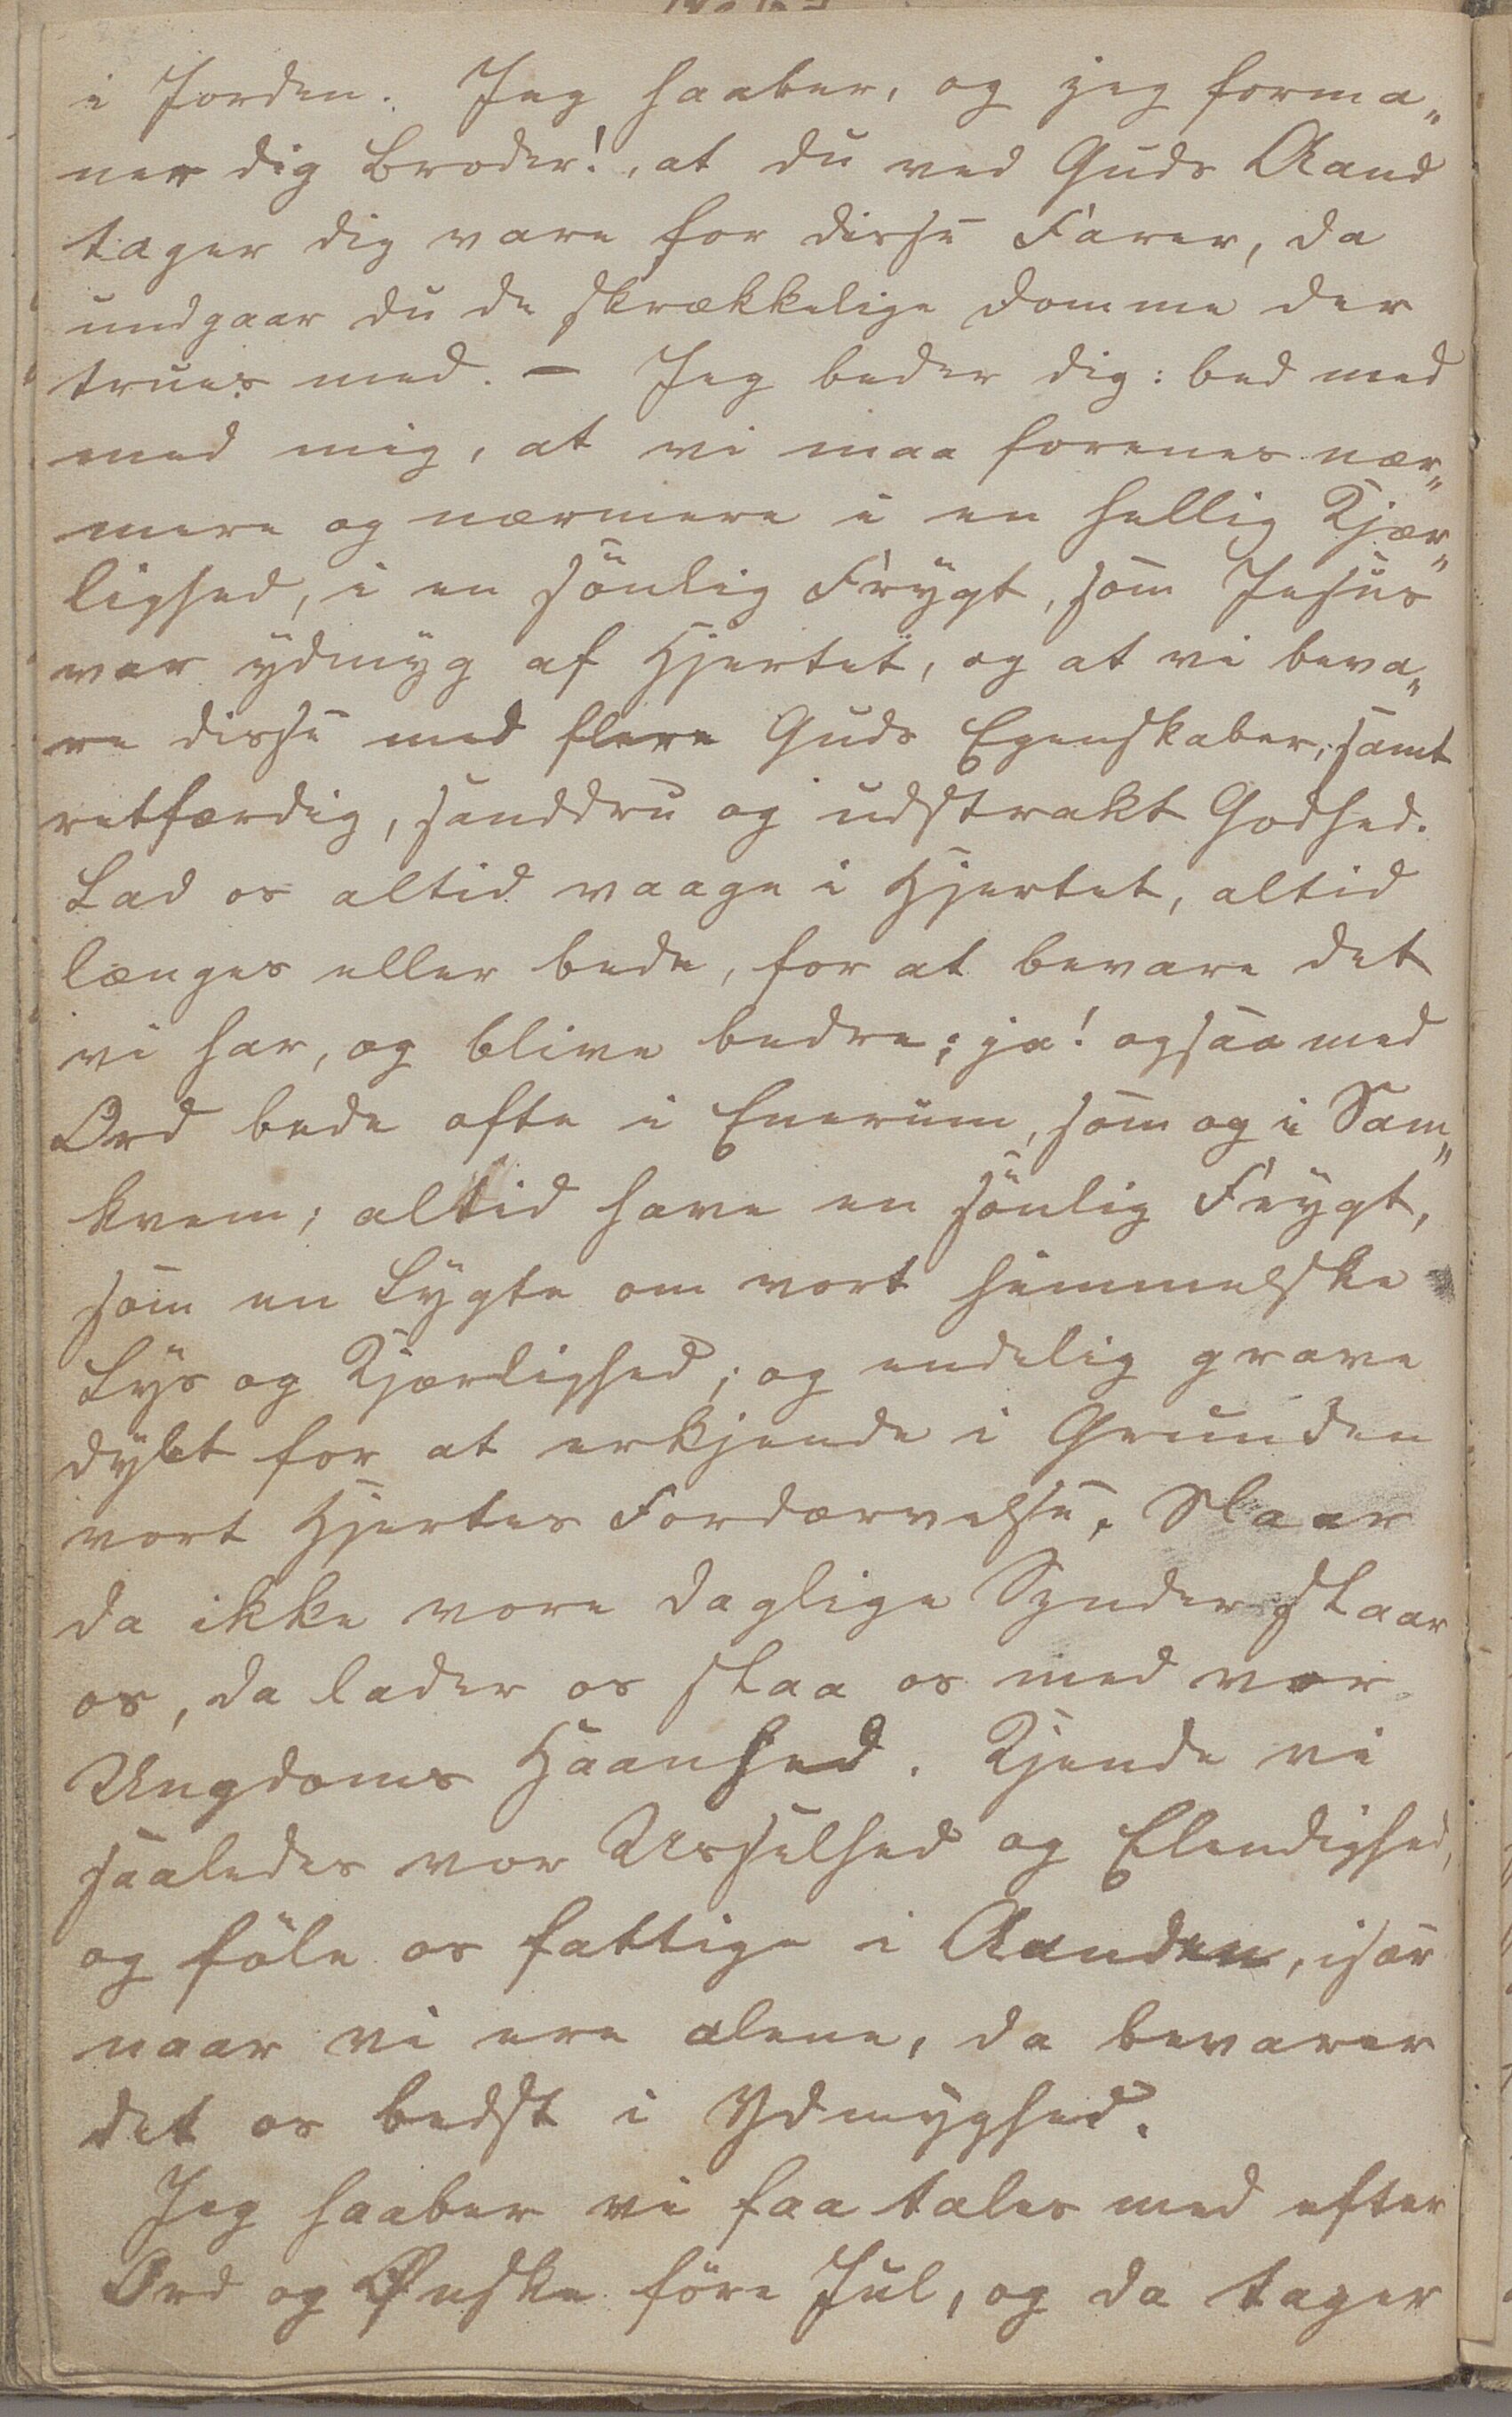 i Jorden. Jeg haaber, og jeg forma„
ner dig Broder!, at du ved Guds Aand
tager dig vare for disse Farer, da
undgaar du de skrækkelige Domme der
trues med. – Jeg beder dig: bed med
med mig, at vi maa forenes nær„
mere og nærmere i en hellig Kjær„
lighed, i en sönlig Frygt, som Jesus
var ydmyg af Hjertet, og at vi beva„
re disse med flere Guds Egenskaber, samt
retfærdig, sanddru og udstrakt Godhed.
Lad os altid vaage i Hjertet, altid
længes eller bede, for at bevare det
vi har, og blive bedre; ja! ogsaa med
Ord bede ofte i Enerum, som og i Sam„
kvem; altid have en sönlig Frygt,
som en Lygte om vort himmelske
Lys og Kjærlighed; og endelig grave
dybt for at erkjende i Grunden
vort Hjertes Fordærvelse. Slaar
da ikke vore daglige Synder slaar
os, da lader os slaa os med vor
Ungdoms Haanhed. Kjende vi
saaledes vor Usselhed og Elendighed,
og föle os fattige i Aanden, især
naar vi ere alene, da bevarer
det os bedst i Ydmyghed.
Jeg haaber vi faa tales med efter
Ord og Ønske före Jul, og da tager